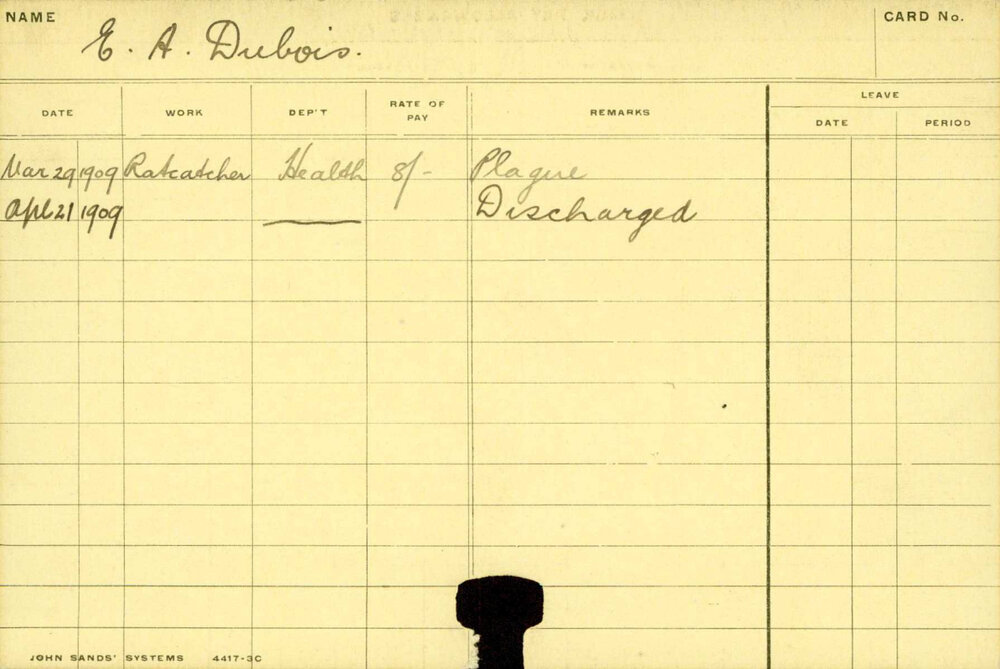 NAME
E. A. Dubois.
CARD No.
DATE WORK DEP'T RATE OF PAY REMARKS LEAVE
DATE PERIOD
Mar 29 1909 Ratcatcher Health 8/- Plague
Apl 21 1909 Discharged
JOHN SANDS' SYSTEMS 4417-3C